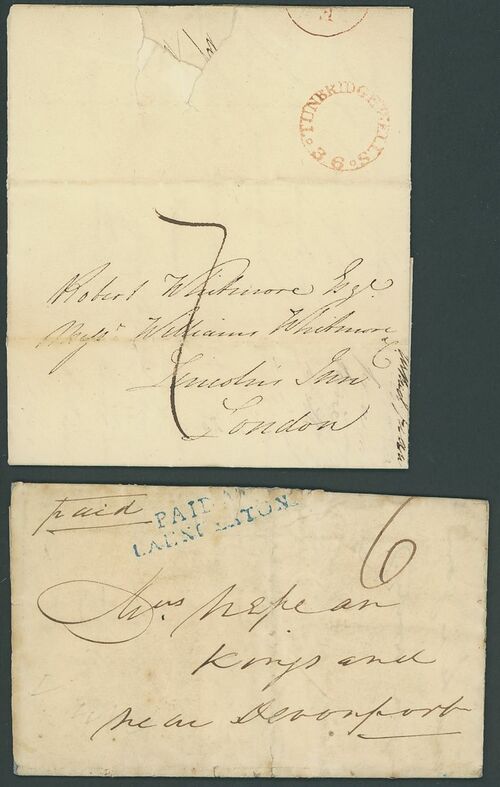 TUNBRIDGE WELLS
36
7
Robert Whitmore Esqr.
Messrs Williams Whitmore &
Lincolns Inn
London
paid
PAID AT
LAUNCESTON
6
Mrs. Nepean
Kingsand
near Devonport